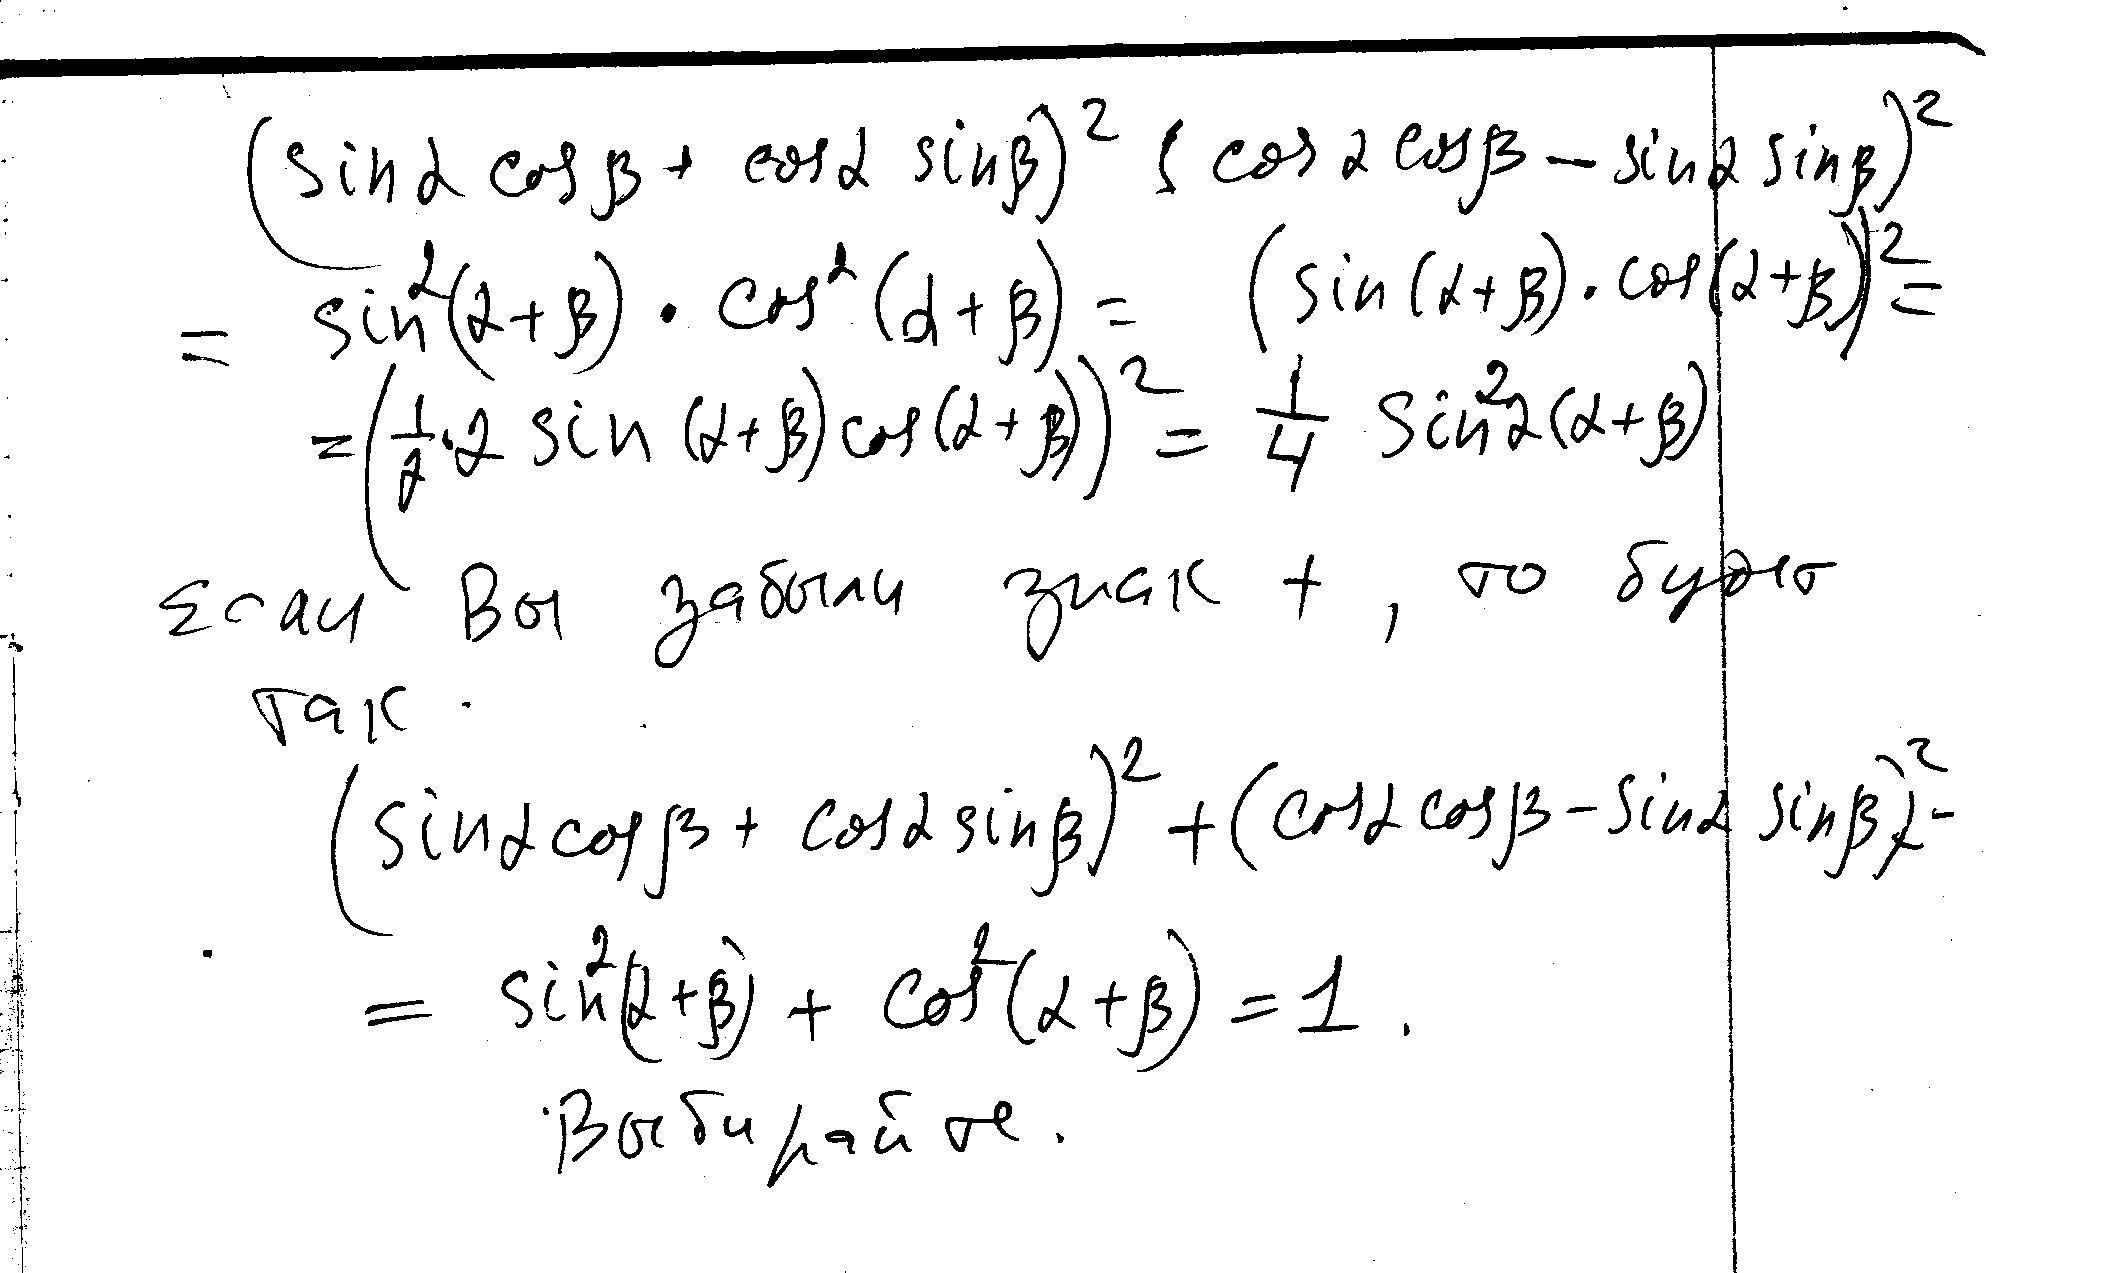 (sinα cosβ + cosα sinβ)² ( cosα cosβ − sinα sinβ)²
= sin²(α+β) · cos²(α+β) = (sin(α+β)·cos(α+β))² =
=(1/2·2 sin(α+β)cos(α+β))² = 1/4 sin²2(α+β)
Если Вы забыли знак +, то будет
так.
(sinα cosβ + cosα sinβ)² + (cosα cosβ − sinα sinβ)² =
= sin²(α+β) + cos²(α+β) = 1.
Выбирайте.